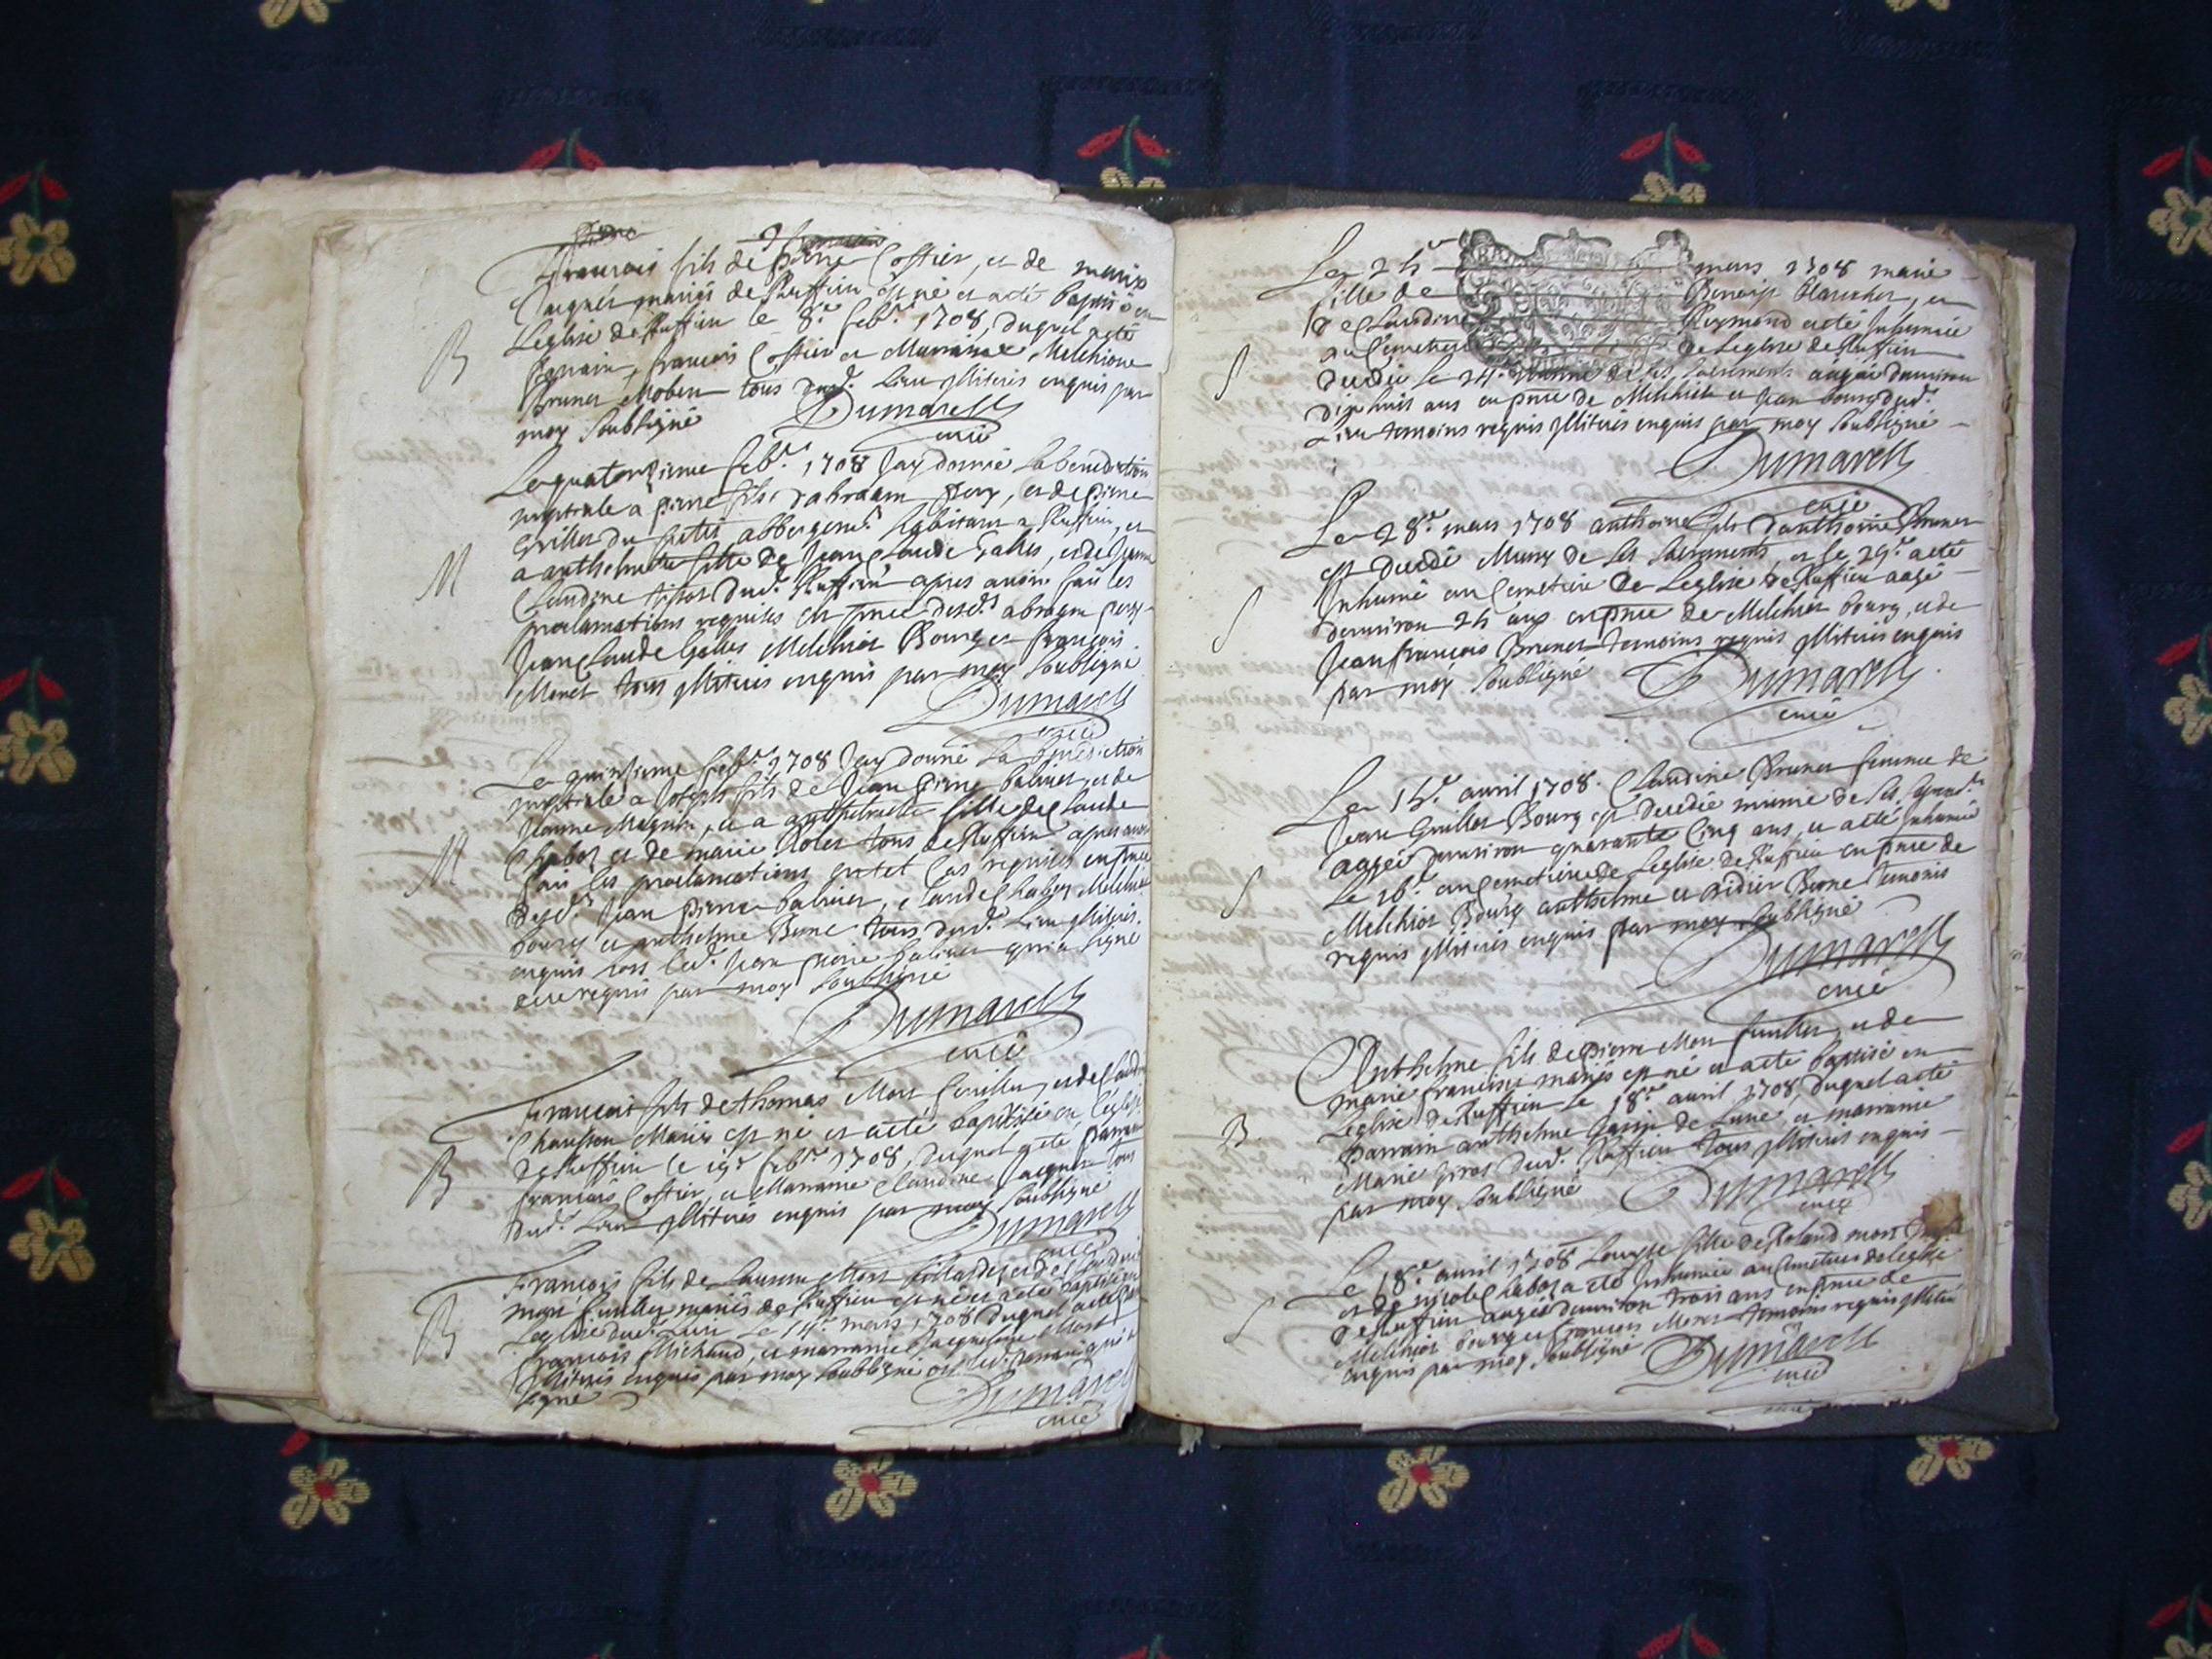 francois fils de pierre Costier, et de marie
Jaques mariés de Ruffieu est né et a eté baptisé en
B
Leglise de Ruffieu le 8.e feb.r 1708, duquel a eté
parrain, francois Costier et Marraine Melchione
Brunet tous dud. lieu illiterés enquis par
moy soubsigné
Dumarest
curé
Le quatorzieme feb.r 1708 Jay donné la benediction
nuptiale a pierre fils d'abraam pery, et de pierre
habitant a Ruffieu, et
M
a anthelmette fille de Jean Claude Galles, et de
Claudine dud. Ruffieu apres avoir fait les
proclamations requises en pnce desd.ts abraam pery
Jean Claude Galles Melchior Bourg et francois
Monet tous illiterés enquis par moy soubsigné
Dumarest
curé
Le quinzieme feb.r 1708 Jay donné la benediction
nuptiale a Joseph fils de Jean pierre balivet, et de
Jeanne et a anthelmette fille de Claude
Chaboz et de marie tous de Ruffieu apres avoir
M
fait les proclamations en tel cas requises en pnce
desd. Jean pierre balivet, Claude Chaboz Melchior
bourg et anthelme Berne tous dud. lieu illiterés
enquis hors led. Jean pierre balivet qui a signé
de ce requis par moy soubsigné
Dumarest
curé
francois fils de thomas Mont et de Claudine
Mariés est né et a eté baptisé en leglise
B
de Ruffieu le 19.e feb.r 1708, duquel a eté parrain
francois Costier, et Marraine Claudine Jaques tous
dud. lieu illiterés enquis par moy soubsigné
Dumarest
curé
francois fils de et de Claudine
mariés de Ruffieu est né et a eté baptisé en
B
Leglise dud. lieu le 14.e mars 1708 duquel a eté
francois Michaud, et marraine Jaqueline Mont
illiterés enquis par moy soubsigné led. parrain qui a
signé
Dumarest
curé
Le 25.e mars 1708 marie
fille de Benoist et
de Claudine Reymond a eté Inhumée
au Cemetiere de Leglise de Ruffieu
S
decedée le 24.e munie de ses sacrements aagée denviron
dix huit ans en pnce de Melchior et Jean bourg dud.
Lieu temoins requis illiterés enquis par moy soubsigné
Dumarest
curé
Le 28.e mars 1708 anthoine fils d'anthoine Brunet
est decedé Muny de ses sacrements, et le 29.e a eté
Inhumé au Cemetiere de Leglise de Ruffieu aagé
S
denviron 25 ans en pnce de Melchior bourg, et de
Jean francois Brunet temoins requis illiterés enquis
par moy soubsigné
Dumarest
curé
Le 15.e avril 1708. Claudine Brunet femme de
Jean Guillet Bourg est decedée munie de ses sacrem.ts
aagée denviron quarante Cinq ans, et a eté Inhumée
S
Le 16.e au Cemetiere de Leglise de Ruffieu en pnce de
Melchior Bourg anthelme et didier Berne temoins
requis illiterés enquis par moy soubsigné
Dumarest
curé
Anthelme fils de pierre Mont et de
marie francoise mariés est né et a eté baptisé en
Leglise de Ruffieu le 18.e avril 1708, duquel a eté
B
parrain anthelme et marraine
Marie gros dud. Ruffieu tous illiterés enquis
par moy soubsigné
Dumarest
curé
Le 18.e avril 1708 Louyse fille de Roland mont
et de nicole Chaboz a eté Inhumée au Cemetiere de leglise
S
de Ruffieu aagée denviron trois ans en pnce de
Melchior bourg et francois Monet temoins requis illiterés
enquis par moy soubsigné
Dumarest
curé